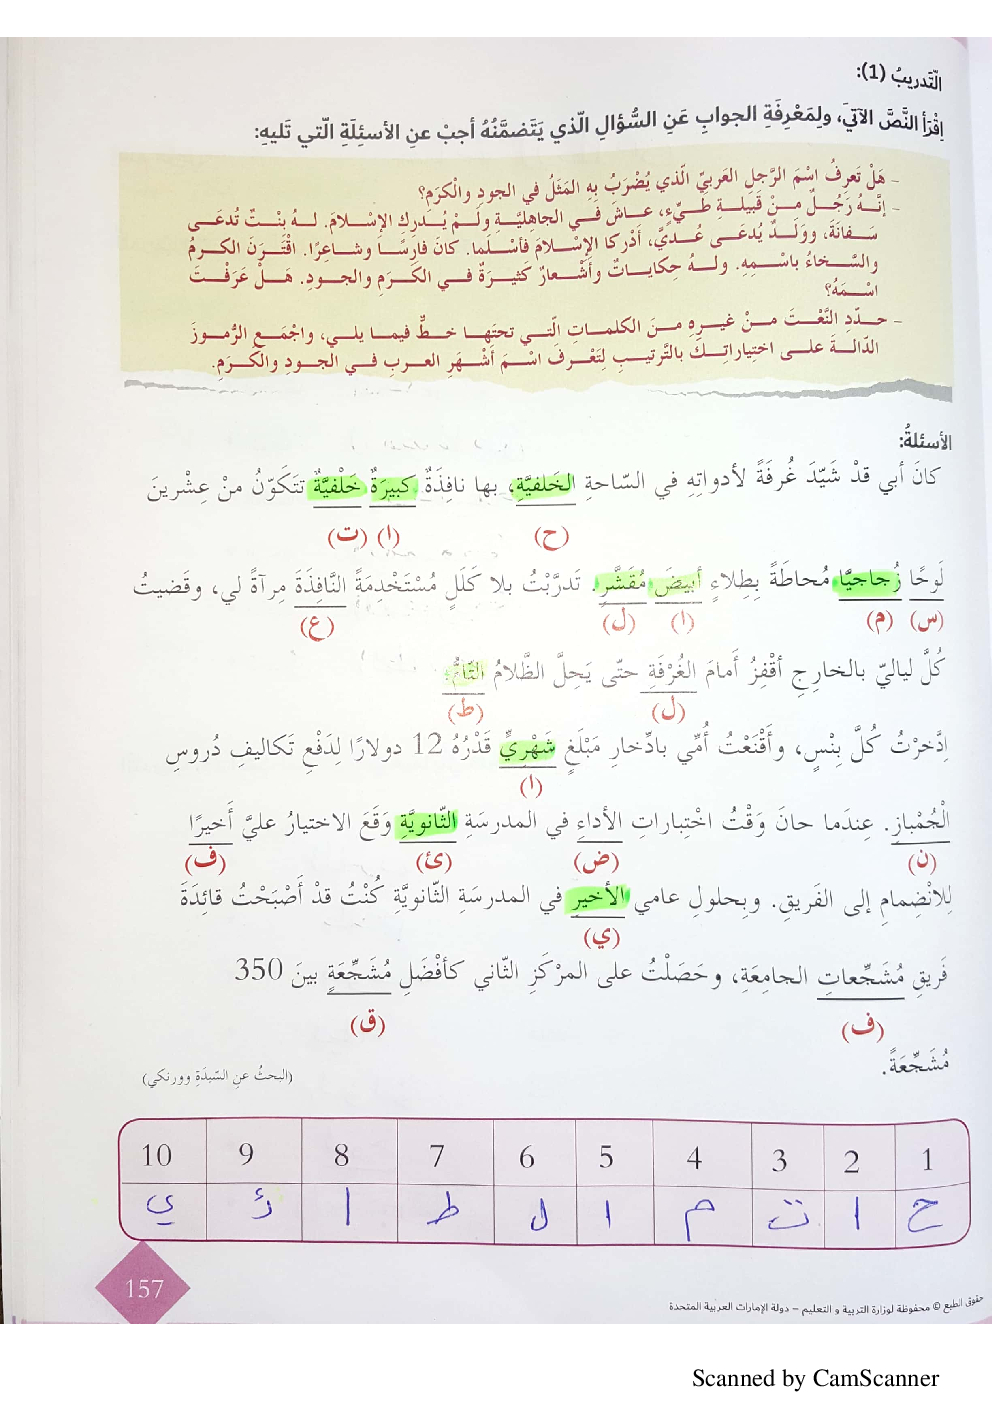 التّدريبُ (1):
اِقْرَأ النَّصَّ الآتيَ، ولِمَعْرِفَةِ الجوابِ عَنِ السُّؤالِ الّذي يَتَضمَّنُهُ أجبْ عنِ الأسئِلَةِ الّتي تَليهِ:
- هَلْ تَعرِفُ اسْمَ الرَّجلِ العَربيِّ الّذي يُضْرَبُ بِهِ المَثَلُ في الجودِ والْكَرَمِ؟
- إنَّـهُ رَجُـلٌ مـنْ قَبيلـةِ طَـيِّءٍ، عـاشَ فـي الجاهليَّـةِ ولَـمْ يُـدركِ الإسْـلامَ. لـهُ بِنْـتٌ تُدعَـى
سَـفانَةَ، ووَلَـدٌ يُدعَـى عُـديَّ، أدْركا الإسْـلامَ فأسْـلَما. كانَ فارِسًـا وشـاعِرًا. اقْتَـرَنَ الكَـرمُ
والسَّـخاءُ باسْـمِهِ. ولـهُ حِكايـاتٌ وأشْـعارٌ كَثيـرَةٌ فـي الكَـرَمِ والجـودِ. هَـلْ عَرَفْـتَ
اسْـمَهُ؟
- حـدِّدِ النَّعْـتَ مـنْ غيـرِهِ مـنَ الكلمـاتِ الّتـي تحتَهـا خـطٌّ فيمـا يلـي، واجْمَـعِ الرُّمـوزَ
الدّالـةَ علـى اختِياراتِـكَ بالتَّرتيـبِ لِتَعْـرفَ اسْـمَ أشْـهَرِ العـربِ فـي الجـودِ والْكَـرَمِ.
الأسئلةُ:
كانَ أبي قدْ شَيّدَ غُرفَةً لأدواتِهِ في السّاحةِ الخَلفيَّةِ، بها نافِذَةٌ كبيرَةٌ خَلْفيَّةٌ تتَكَوّنُ منْ عِشْرينَ
(ح) (ا) (ت)
لَوحًا زُجاجيًّا مُحاطَةً بِطِلاءٍ أبيضَ مُقَشَّرٍ. تَدرَّبْتُ بلا كَلَلٍ مُسْتَخْدِمَةً النَّافِذَةَ مِرآةً لي، وقَضيتُ
(س) (م) (ا) (ل) (ع)
كُلَّ لياليّ بالخارِجِ أقْفِزُ أَمامَ الغُرْفَةِ حتّى يَحِلَّ الظَّلامُ التّامُّ.
(ل) (ط)
اِدَّخرْتُ كُلَّ بِنْسٍ، وأقْنَعْتُ أُمِّي بادِّخارِ مَبْلَغٍ شَهْرِيٍّ قَدْرُهُ 12 دولارًا لِدَفْعِ تَكاليفِ دُروسِ
(ا)
الْجُمْبازِ. عِندَما حانَ وَقْتُ اخْتِباراتِ الأداءِ في المدرسَةِ الثّانويَّةِ وَقَعَ الاختيارُ عليَّ أَخيرًا
(ن) (ض) (ئ) (ف)
لِلانْضِمامِ إلى الفَريقِ. وبِحلولِ عامي الأخيرِ في المدرسَةِ الثّانويَّةِ كُنْتُ قدْ أصْبَحْتُ قائِدَةَ
(ي)
فَريقِ مُشَجِّعاتِ الجامعَةِ، وحَصَلْتُ على المرْكَزِ الثّاني كأفْضَلِ مُشَجِّعَةٍ بينَ 350
(ف) (ق)
مُشَجِّعَةً.
(البحثُ عنِ السّيدَةِ وورنكي)
1 2 3 4 5 6 7 8 9 10
ح ا ت م ا ل ط ا ئ ي
157
حقوق الطبع © محفوظة لوزارة التربية و التعليم – دولة الإمارات العربية المتحدة
Scanned by CamScanner